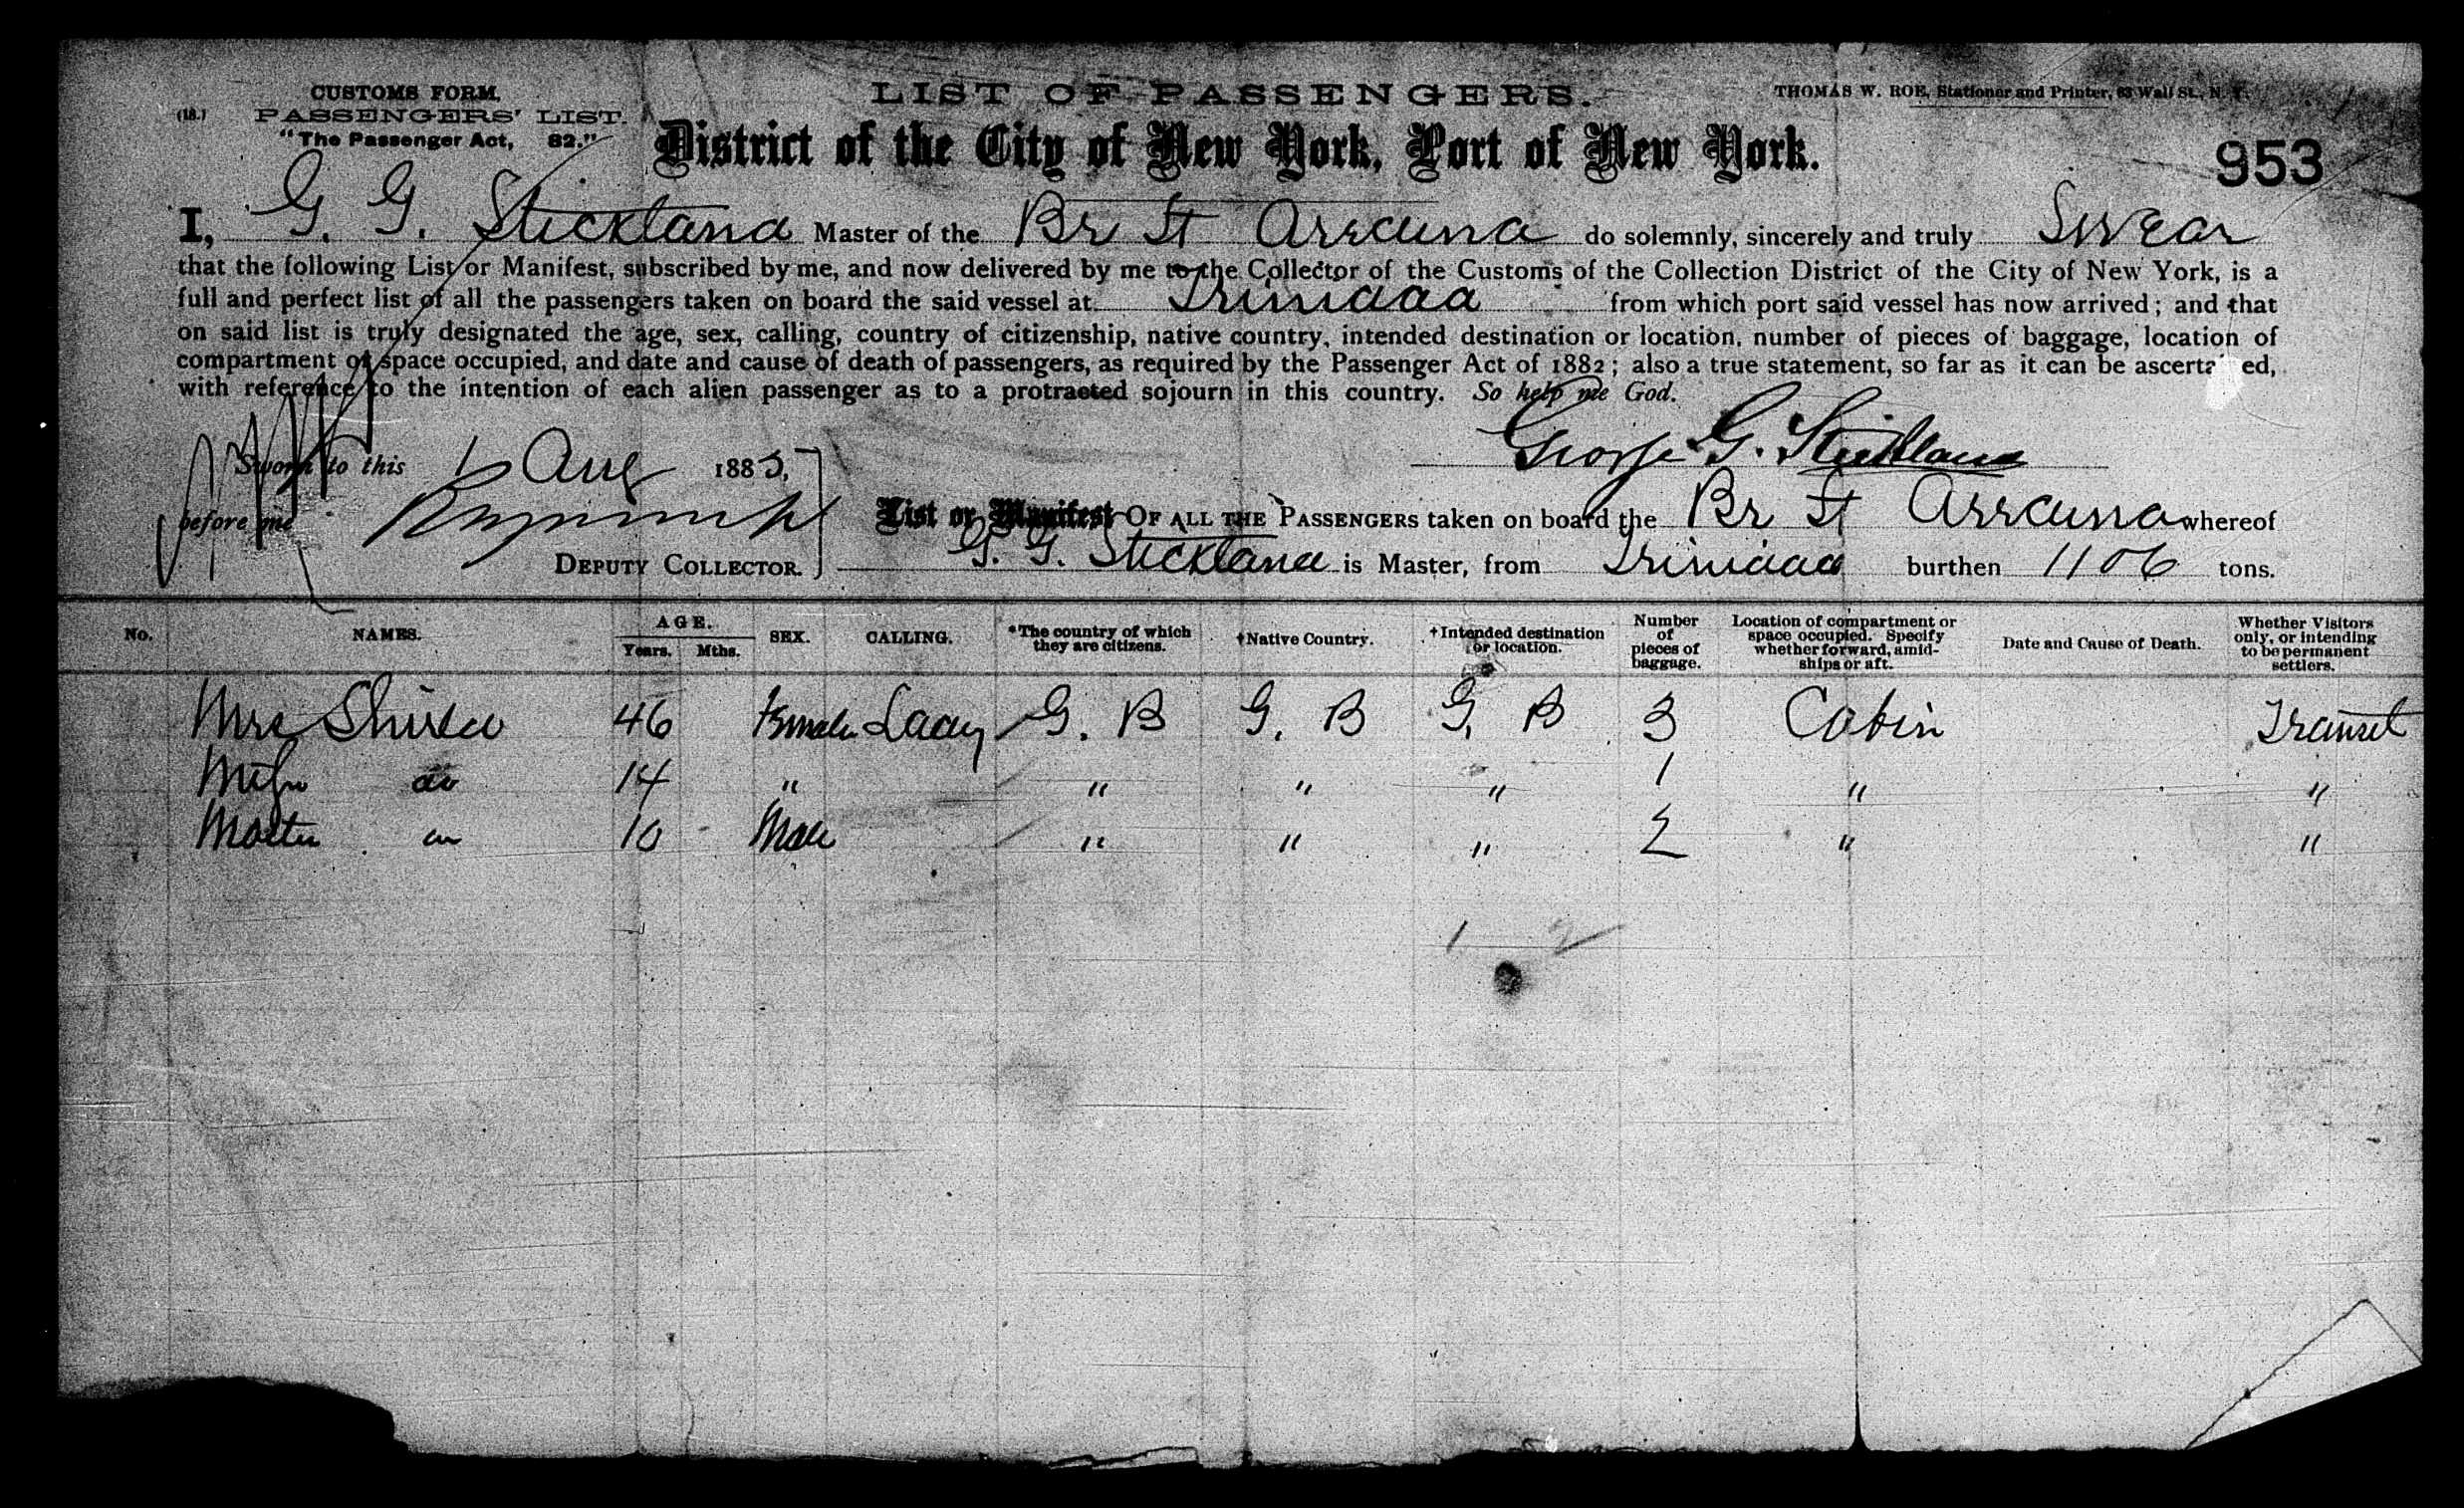 CUSTOMS FORM.
(18.) PASSENGERS' LIST.
"The Passenger Act, 82."
LIST OF PASSENGERS.
THOMAS W. ROE, Stationer and Printer, 63 Wall St., N. Y.
District of the City of New York, Port of New York.
953
I, G. G. Stickland Master of the Br St do solemnly, sincerely and truly Swear
that the following List or Manifest, subscribed by me, and now delivered by me to the Collector of the Customs of the Collection District of the City of New York, is a
full and perfect list of all the passengers taken on board the said vessel at Trinidad from which port said vessel has now arrived; and that
on said list is truly designated the age, sex, calling, country of citizenship, native country, intended destination or location, number of pieces of baggage, location of
compartment or space occupied, and date and cause of death of passengers, as required by the Passenger Act of 1882; also a true statement, so far as it can be ascerta ed,
with reference to the intention of each alien passenger as to a protracted sojourn in this country. So help me God.
George G. Stickland
Sworn to this Aug 1885,
before me
DEPUTY COLLECTOR.
List or Manifest OF ALL THE PASSENGERS taken on board the Br St whereof
G. G. Stickland is Master, from Trinidad burthen 1106 tons.
No. NAMES. AGE. Years. Mths. SEX. CALLING. *The country of which they are citizens. †Native Country. †Intended destination or location. Number of pieces of baggage. Location of compartment or space occupied. Specify whether forward, amidships or aft. Date and Cause of Death. Whether Visitors only, or intending to be permanent settlers.
Mrs 46 Female Lady G. B G. B G. B 3 Cabin Transit
do 14 " " " " 1 " "
Master do 10 Male " " " 2 " "
1 2